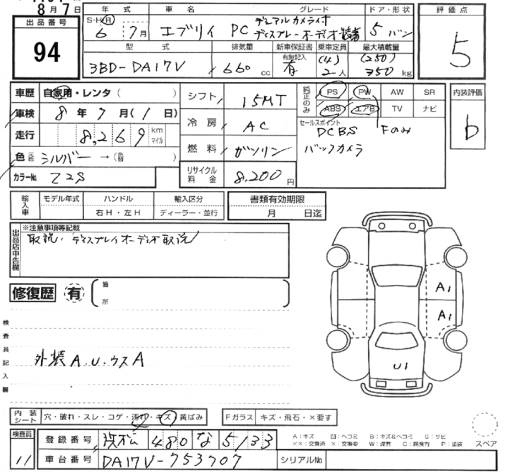 8月7日
出品番号
94
年式 車名 グレード ドア・形状
S・H・R 6年7月 エブリィ PC デュアルカメラライオ ディスプレーオーディオ装着 5 バン
型式 排気量 新車保証書 乗車定員 最大積載量
有無記入 (4) (250)
3BD-DA17V 660cc 有 2人 350kg
評価点
5
車歴 自家用・レンタ( )
車検 8年7月(1日)
走行 8,269 km マイル
色 シルバー →(替 )
カラーNo. Z2S
シフト 15MT
冷房 AC
燃料 ガソリン
リサイクル料金 8,200円
純正のみ PS PW AW SR
ABS エアB TV ナビ
セールスポイント
DCBS Fのみ
バックカメラ
内装評価
b
輸入車 モデル年式 ハンドル 輸入区分
右H・左H ディーラー・並行
書類有効期限
月 日迄
出品店申告欄
※注意事項等記載
取説・ディスプレイオーディオ取説
修復歴 有 箇所
検査員記入欄
外装 A.U.ウスA
A1
A1
U1
内装シート 穴・破れ・スレ・コゲ・汚れ・キズ・黄ばみ
Fガラス キズ・飛石・×要す
検査員
11
登録番号 浜松 480 な 5133
車台番号 DA17V-753707
シリアルNo.
スペア